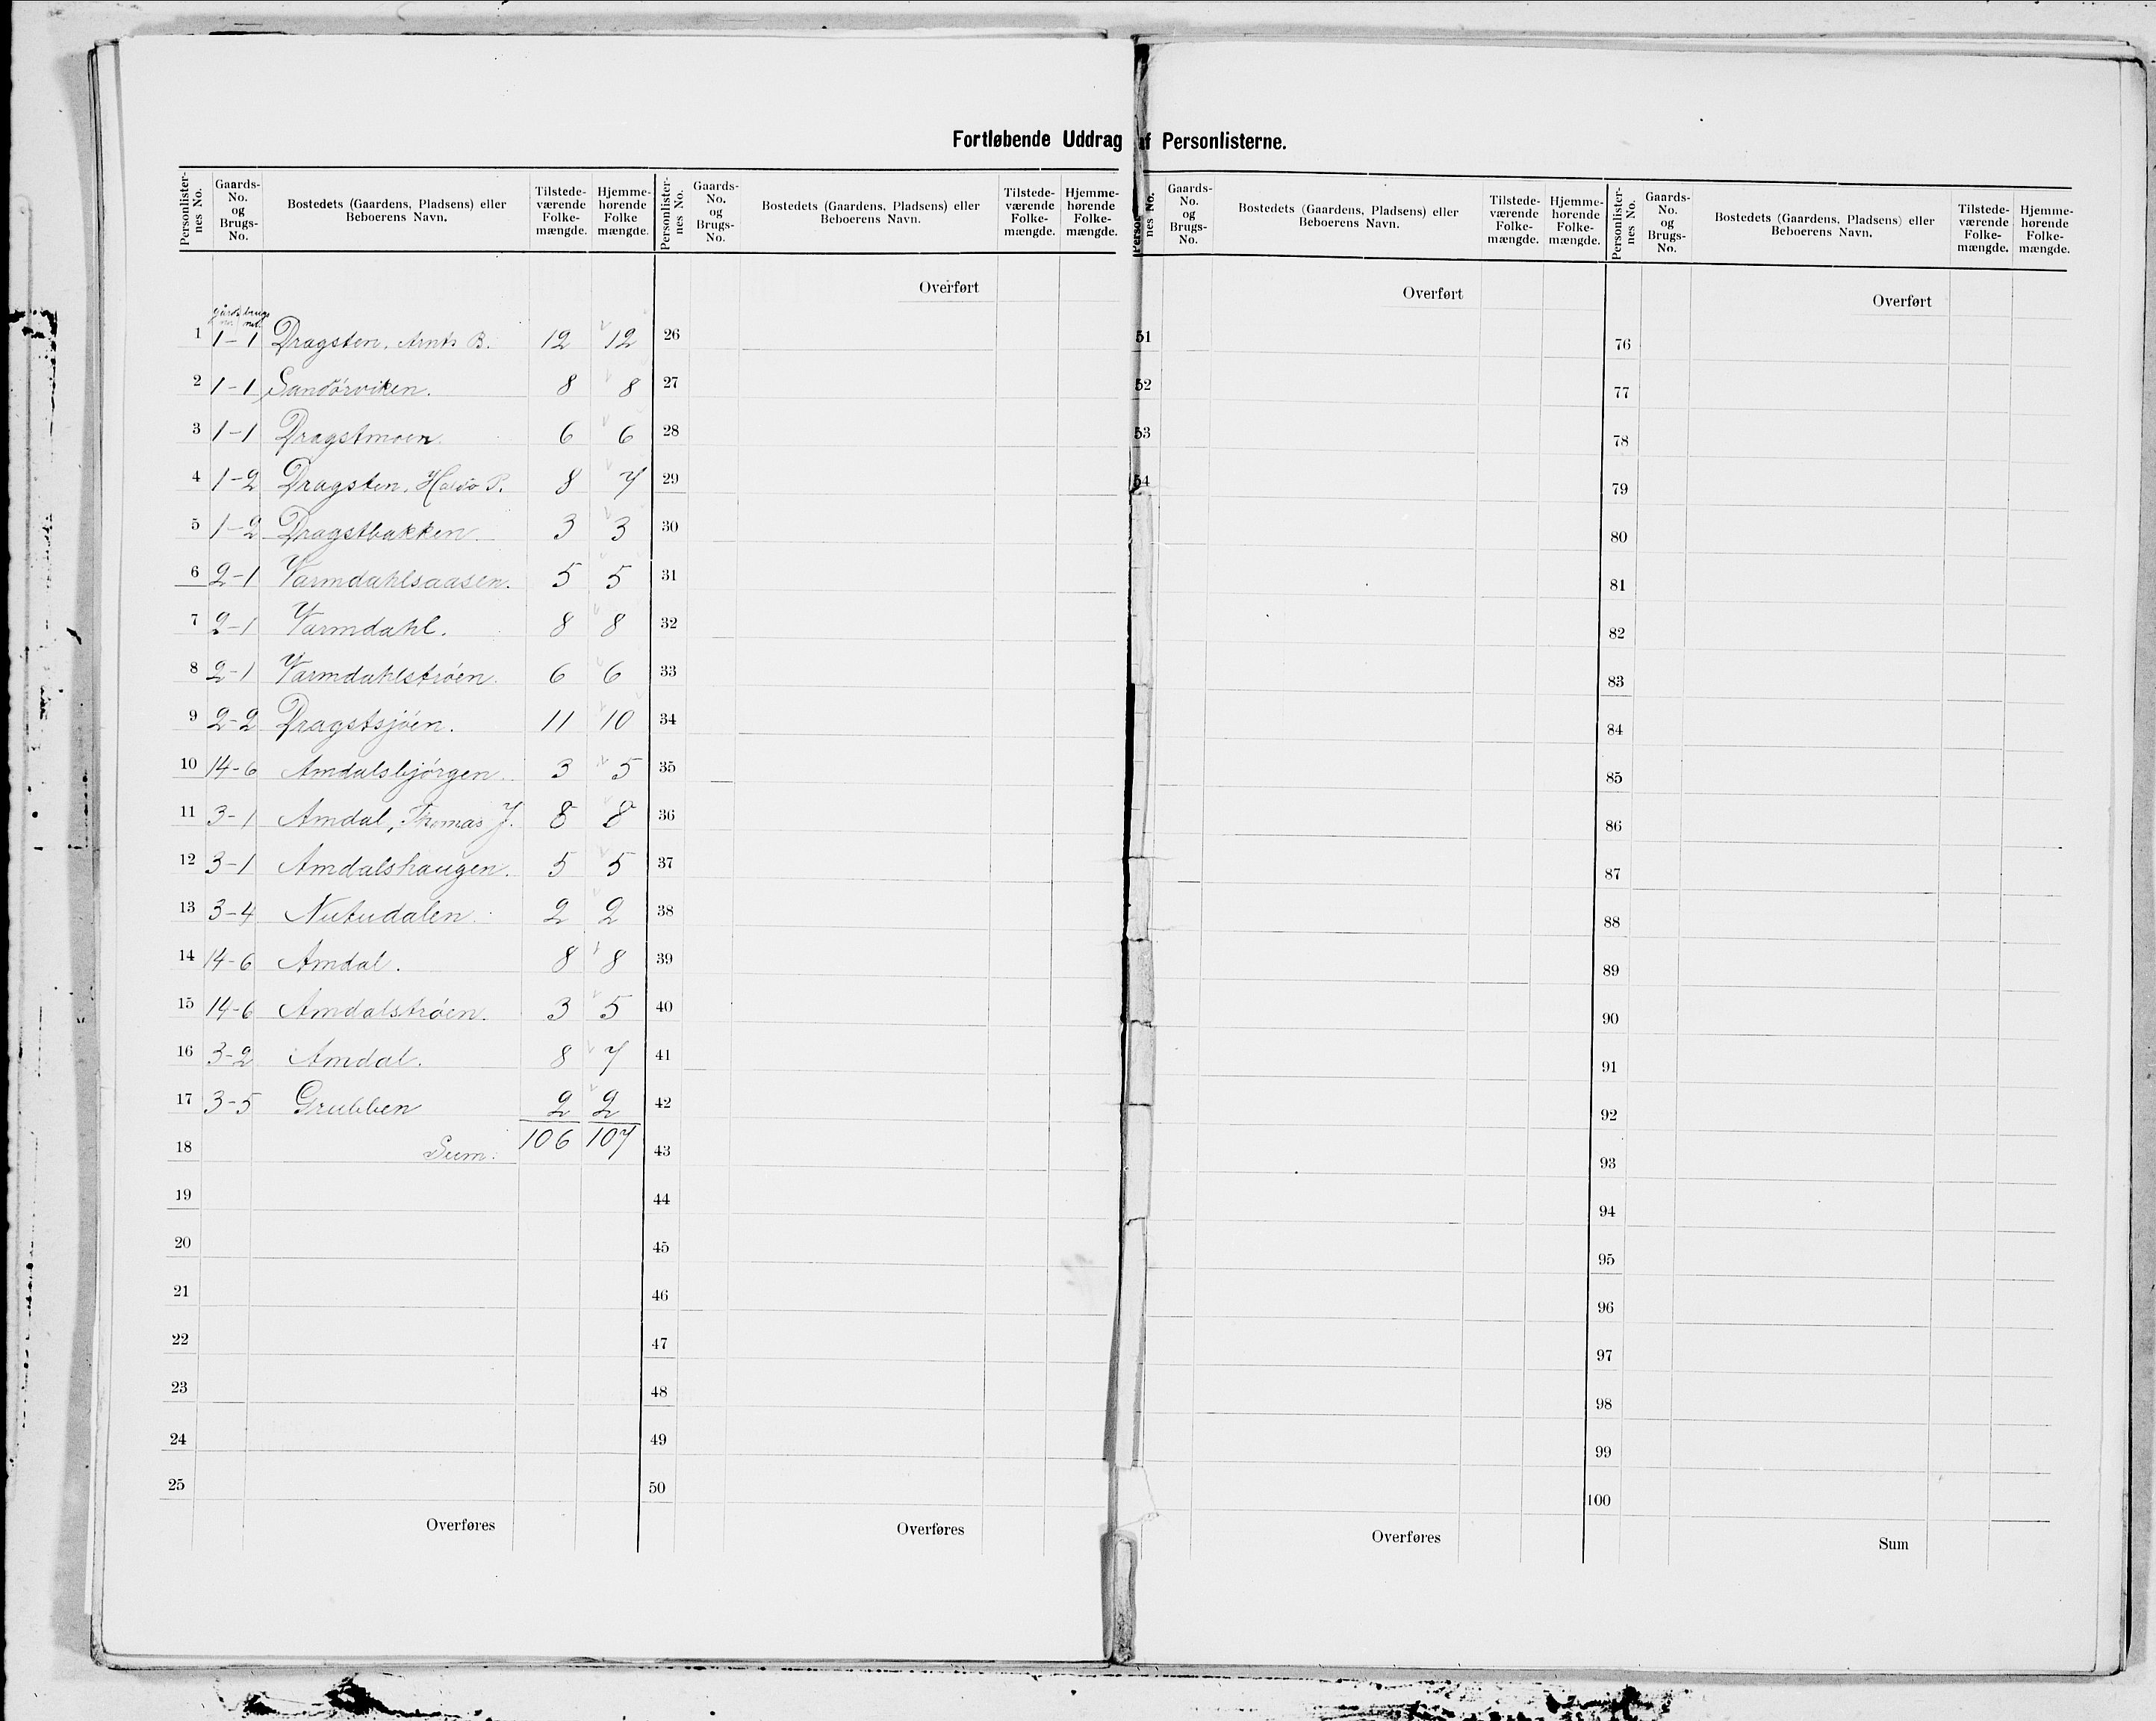 Fortløbende Uddrag af Personlisterne.
Personlister-nes No. | Gaards-No. og Brugs-No. | Bostedets (Gaardens, Pladsens) eller Beboerens Navn. | Tilstede-værende Folke-mængde. | Hjemme-hørende Folke mængde.
1 1-1 Dragsten, Arnt B. 12 12
2 1-1 Sandörviken. 8 8
3 1-1 Dragstmoen 6 6
4 1-2 Dragsten, P. 8 7
5 1-2 Dragstbakken 3 3
6 2-1 Varmdahlsaasen. 5 5
7 2-1 Varmdahl. 8 8
8 2-1 Varmdahlströen. 6 6
9 2-2 Dragstsjöen. 11 10
10 14-6 Amdalsbjörgen. 3 5
11 3-1 Amdal, Thomas J. 8 8
12 3-1 Amdalshaugen. 5 5
13 3-4 Nutudalen. 2 2
14 14-6 Amdal. 8 8
15 14-6 Amdalströen. 3 5
16 3-2 Amdal. 8 7
17 3-5 Grubben 2 2
18 Sum. 106 107
19
20
21
22
23
24
25
Overføres
Personlister-nes No. | Gaards-No. og Brugs-No. | Bostedets (Gaardens, Pladsens) eller Beboerens Navn. | Tilstede-værende Folke-mængde. | Hjemme-hørende Folke-mængde.
Overført
26
27
28
29
30
31
32
33
34
35
36
37
38
39
40
41
42
43
44
45
46
47
48
49
50
Overføres
nes No. | Gaards-No. og Brugs-No. | Bostedets (Gaardens, Pladsens) eller Beboerens Navn. | Tilstede-værende Folke-mængde. | Hjemme-hørende Folke-mængde.
Overført
51
52
53
54
Overføres
Personlister-nes No. | Gaards-No. og Brugs-No. | Bostedets (Gaardens, Pladsens) eller Beboerens Navn. | Tilstede-værende Folke-mængde. | Hjemme-hørende Folke-mængde.
Overført
76
77
78
79
80
81
82
83
84
85
86
87
88
89
90
91
92
93
94
95
96
97
98
99
100
Sum